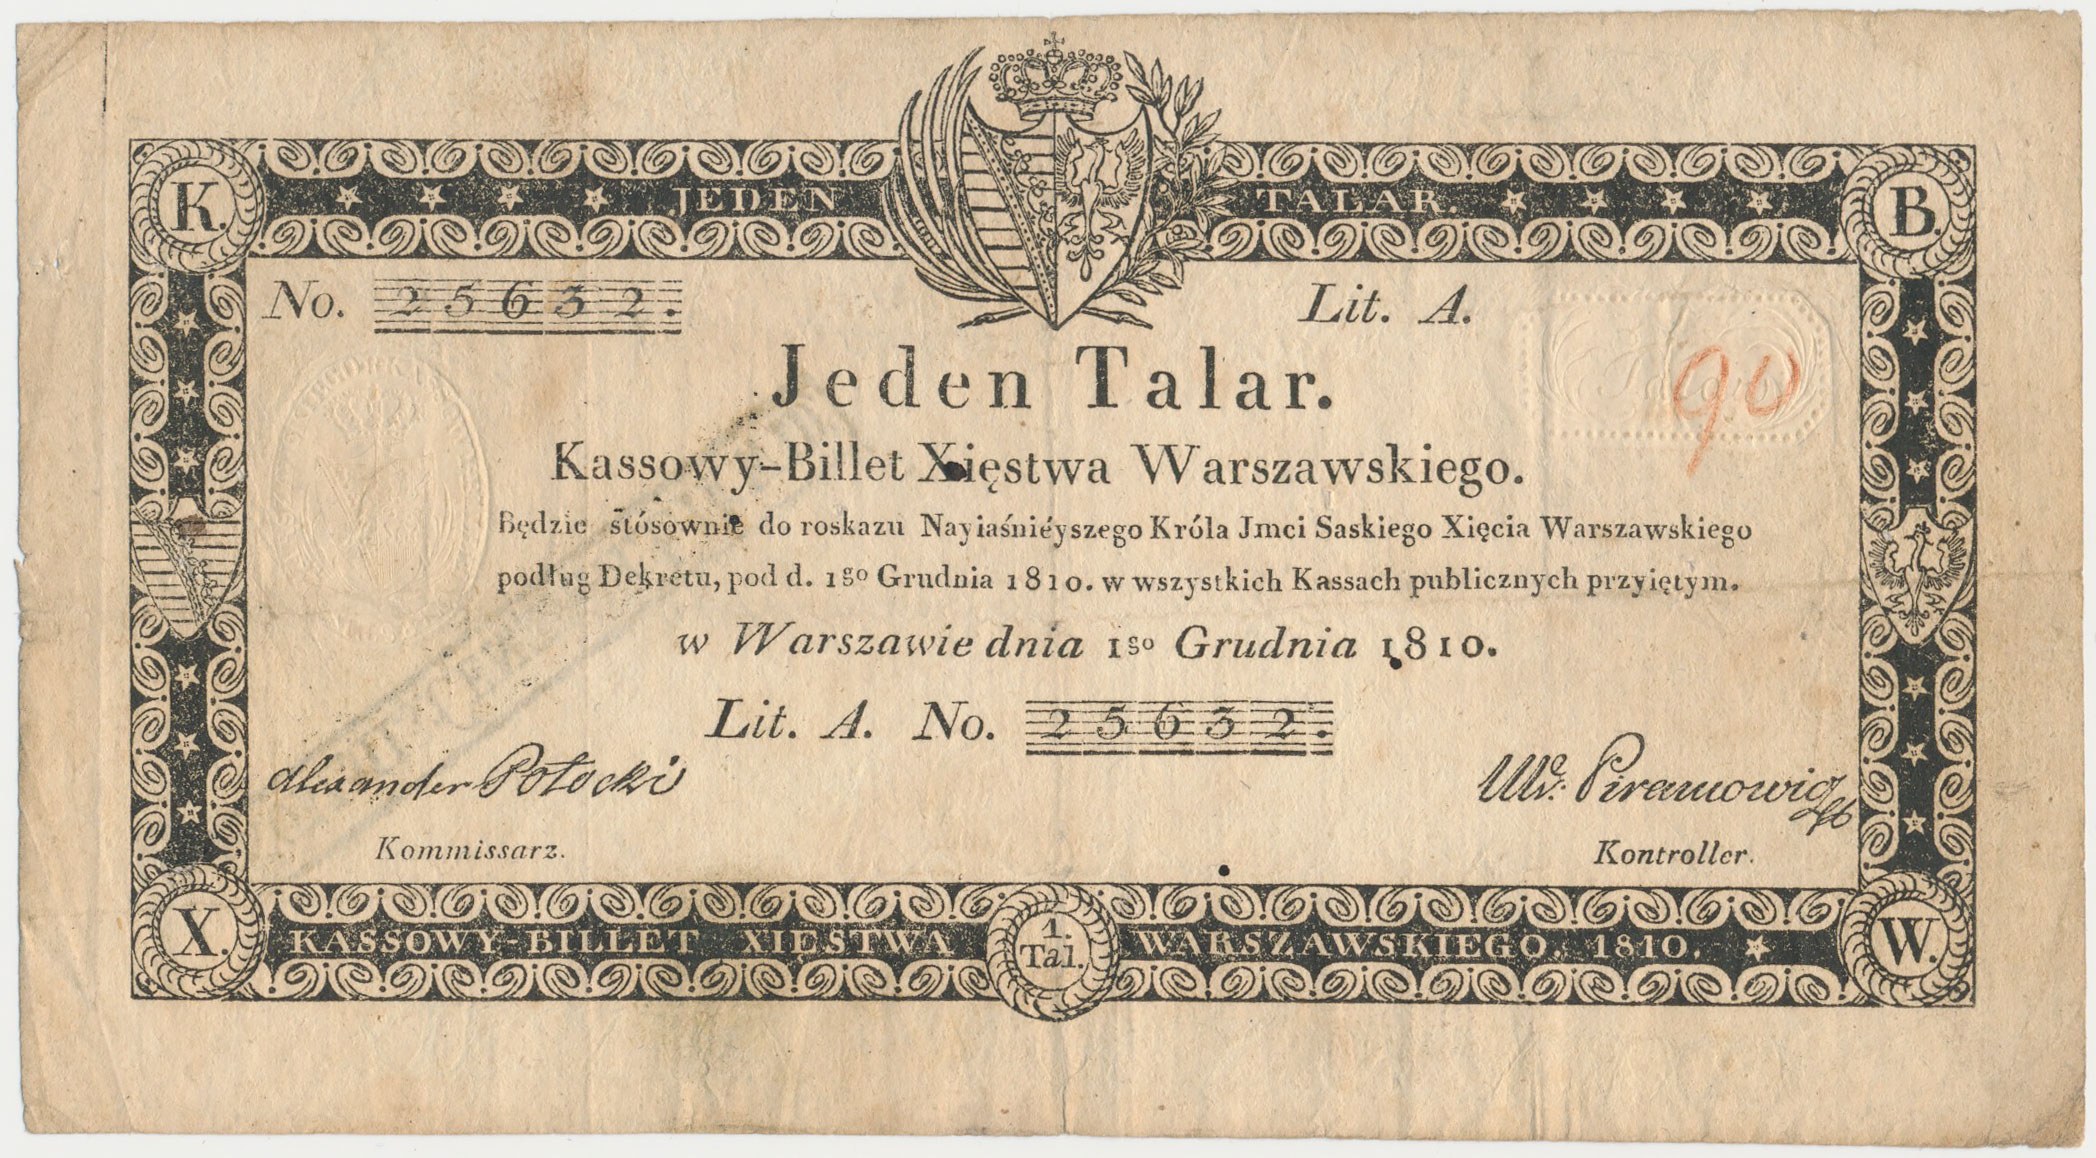 K. JEDEN TALAR. B.
No. 25632. Lit. A.
90
Jeden Talar.
Kassowy-Billet Xięstwa Warszawskiego.
Będzie stósownie do roskazu Nayiaśniéyszego Króla Jmci Saskiego Xięcia Warszawskiego
podług Dekretu, pod d. 1go Grudnia 1810. w wszystkich Kassach publicznych przyiętym.
w Warszawie dnia 1go Grudnia 1810.
Lit. A. No. 25632.
Alexander Potocki
Piramowicz
Kommissarz. Kontroller.
X. KASSOWY-BILLET XIĘSTWA 1. Tal. WARSZAWSKIEGO. 1810. W.